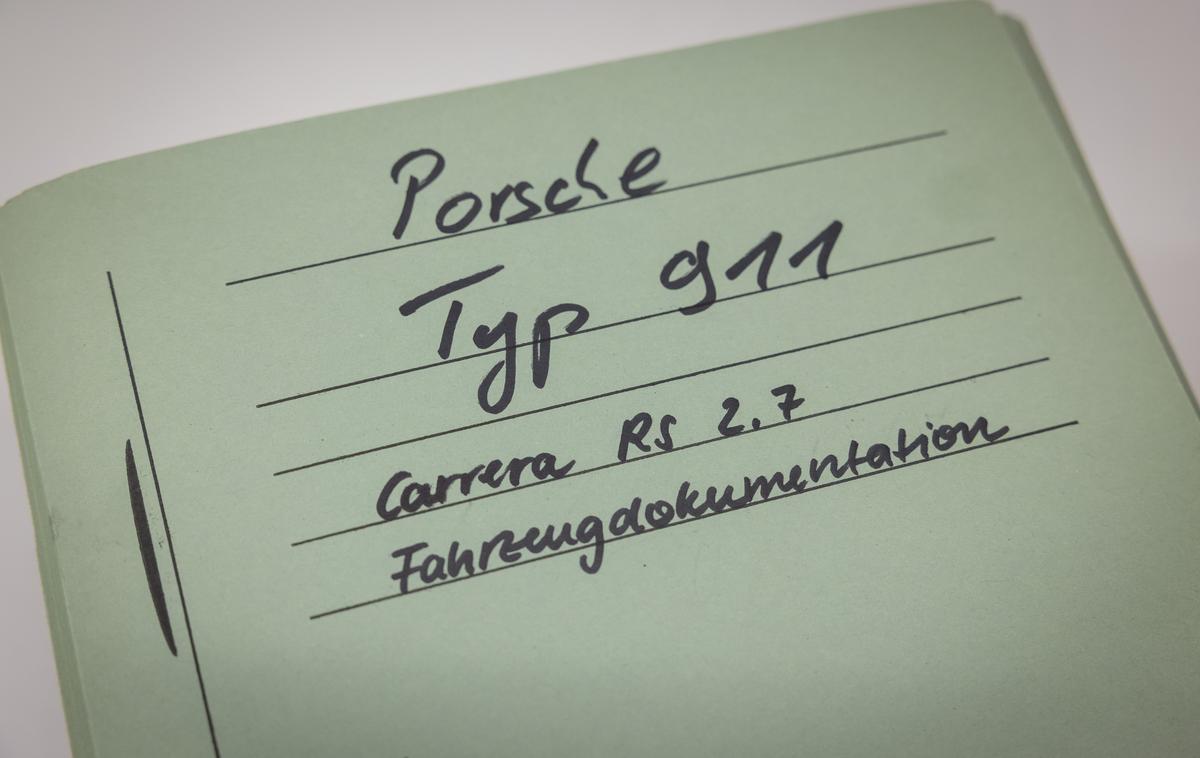 Porsche
Typ 911
Carrera RS 2.7
Fahrzeugdokumentation